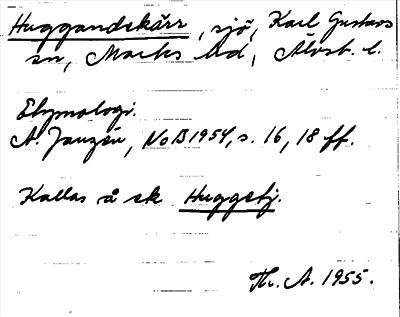 Huggandskärr, sjö, Karl Gustavs
sn, Marks hd, Älvsb. l.
Etymologi.
A. Janzén, NoB 1954, s. 16, 18 ff.
Kallas å sk Huggesj.
Th. A. 1955.